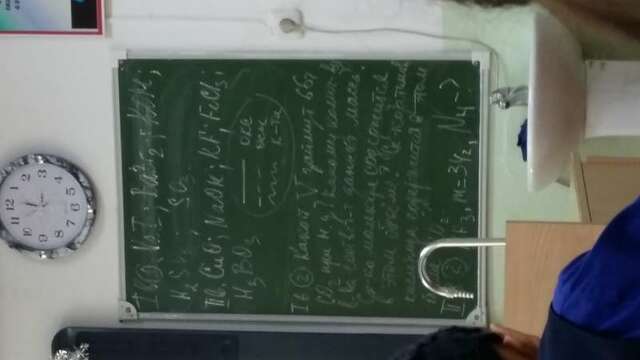 12 1 2 3 4 5 6 7 8 9 10 11
I в. ① NaI; ; KOH;
H₂S ; SO₃.
II в. CuO; NaOH; KF; FeCl₃;
H₃BO₃
окс
осн
к-та
I в ② Какой V займут 66г
CO₂ при н.у? Какому колич. в-
ва соответ-т данная масса?
Ск-ко молекул содержится
в этом объеме? Ск-ко атомов
кислорода содержится в этом
II ② , m=34г, Nч-?